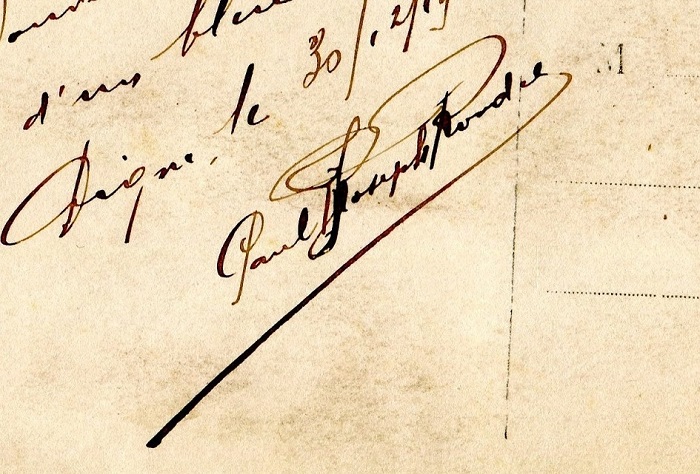 d'un
Digne, le 30/12/19
Paul Joseph Rondel
M